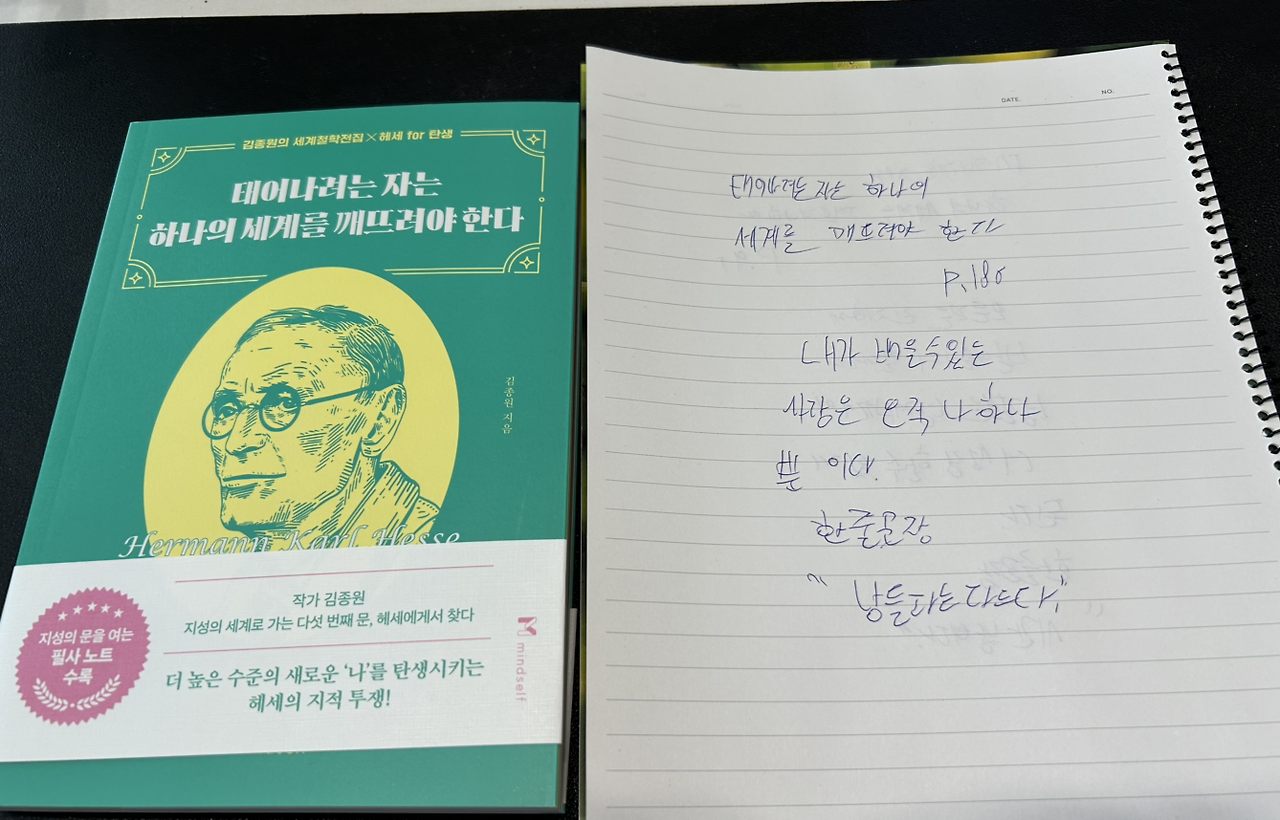 김종원의 세계철학전집×헤세 for 탄생
태어나려는 자는
하나의 세계를 깨뜨려야 한다
김종원 지음
Hermann Karl Hesse
작가 김종원
지성의 세계로 가는 다섯 번째 문, 헤세에게서 찾다
더 높은 수준의 새로운 ‘나’를 탄생시키는
헤세의 지적 투쟁!
지성의 문을 여는
필사 노트
수록
mindself
DATE.
NO.
태어나려는 자는 하나의
세계를 깨뜨려야 한다
P.180
내가 바꿀수있는
사람은 오직 나 하나
뿐 이다.
한줄문장
"남들과는 다르다"